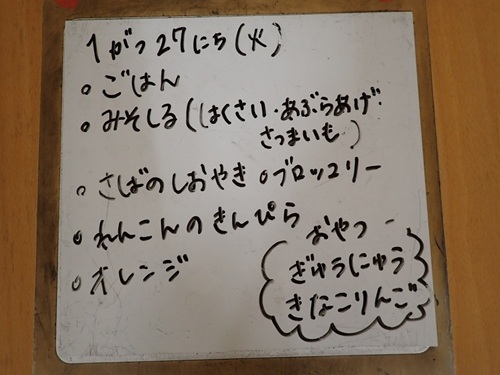 1がつ27にち(火)
○ごはん
○みそしる(はくさい・あぶらあげ・
さつまいも)
○さばのしおやき ○ブロッコリー
○れんこんのきんぴら
○オレンジ
おやつ
ぎゅうにゅう
きなこりんご